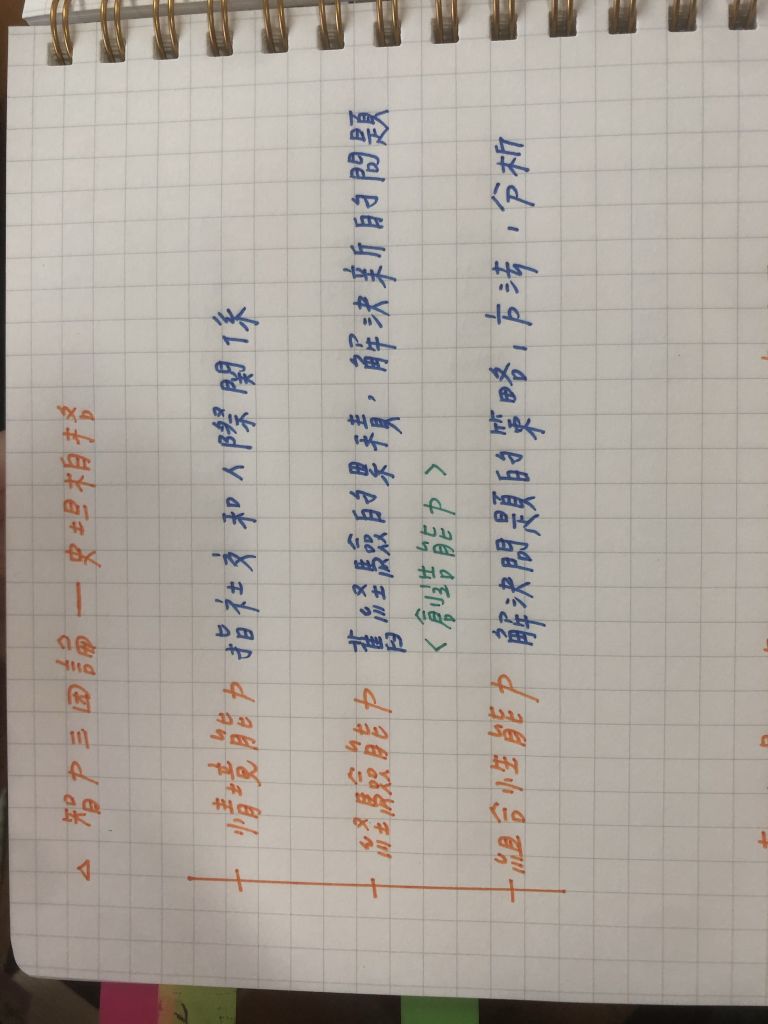 △ 智力三因論 — 史坦柏格
情境能力 指社交和人際關係
經驗能力 舊經驗的累積，解決新的問題
<創造能力>
組合性能力 解決問題的策略、方法、分析